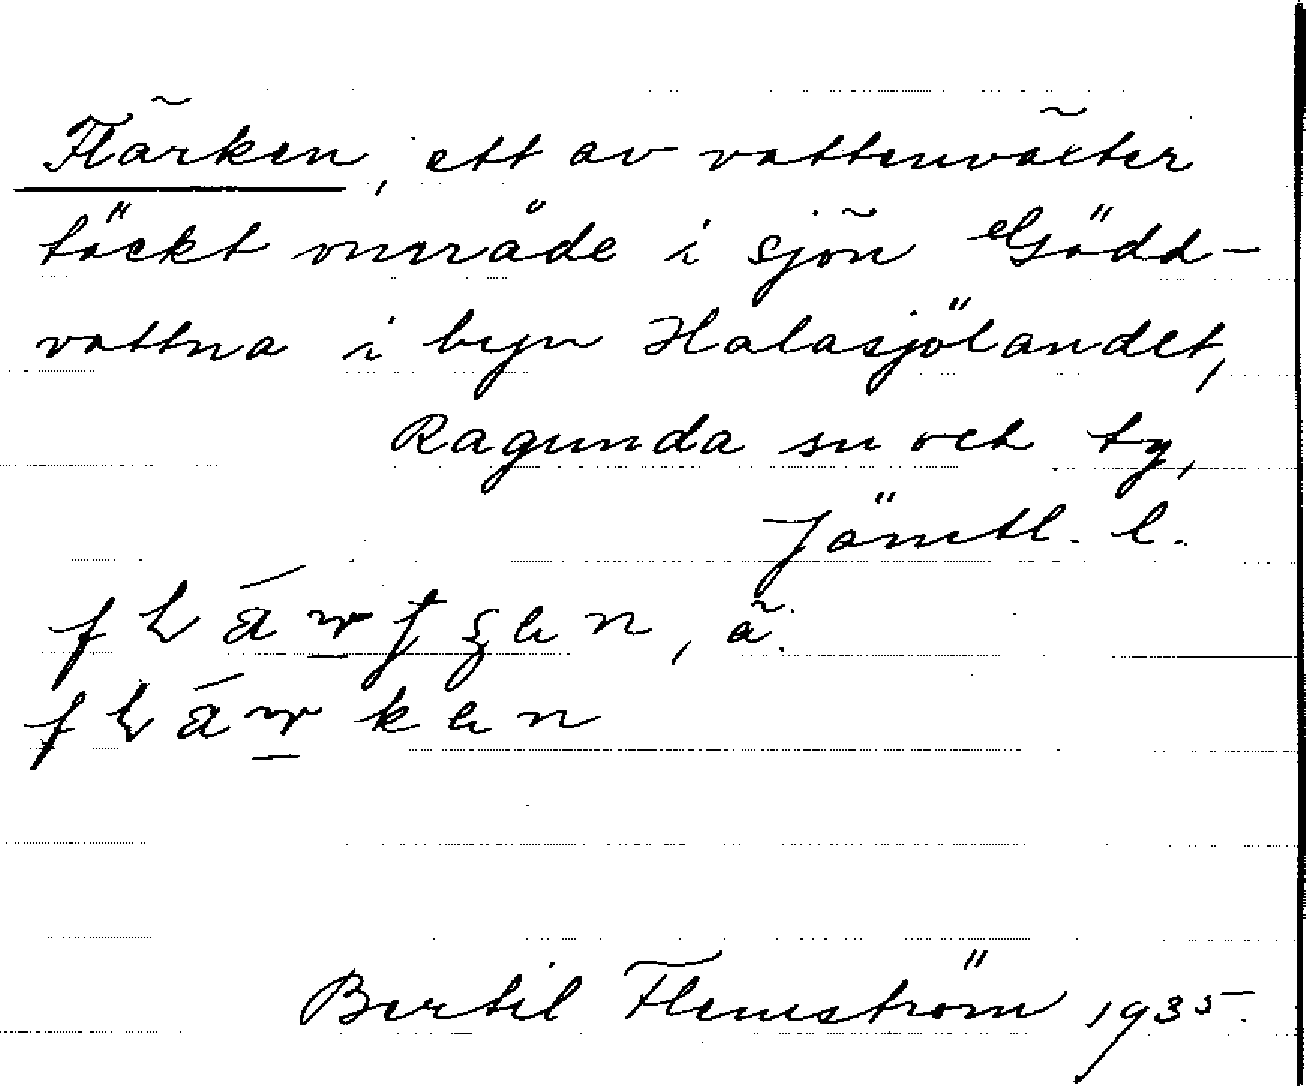 Flärken, ett av vattenväxter
täckt område i sjön Gädd-
vattna i byn Halasjölandet,
Ragunda sn och tg,
Jämtl. l.
ä.
Bertil Flemström 1935.